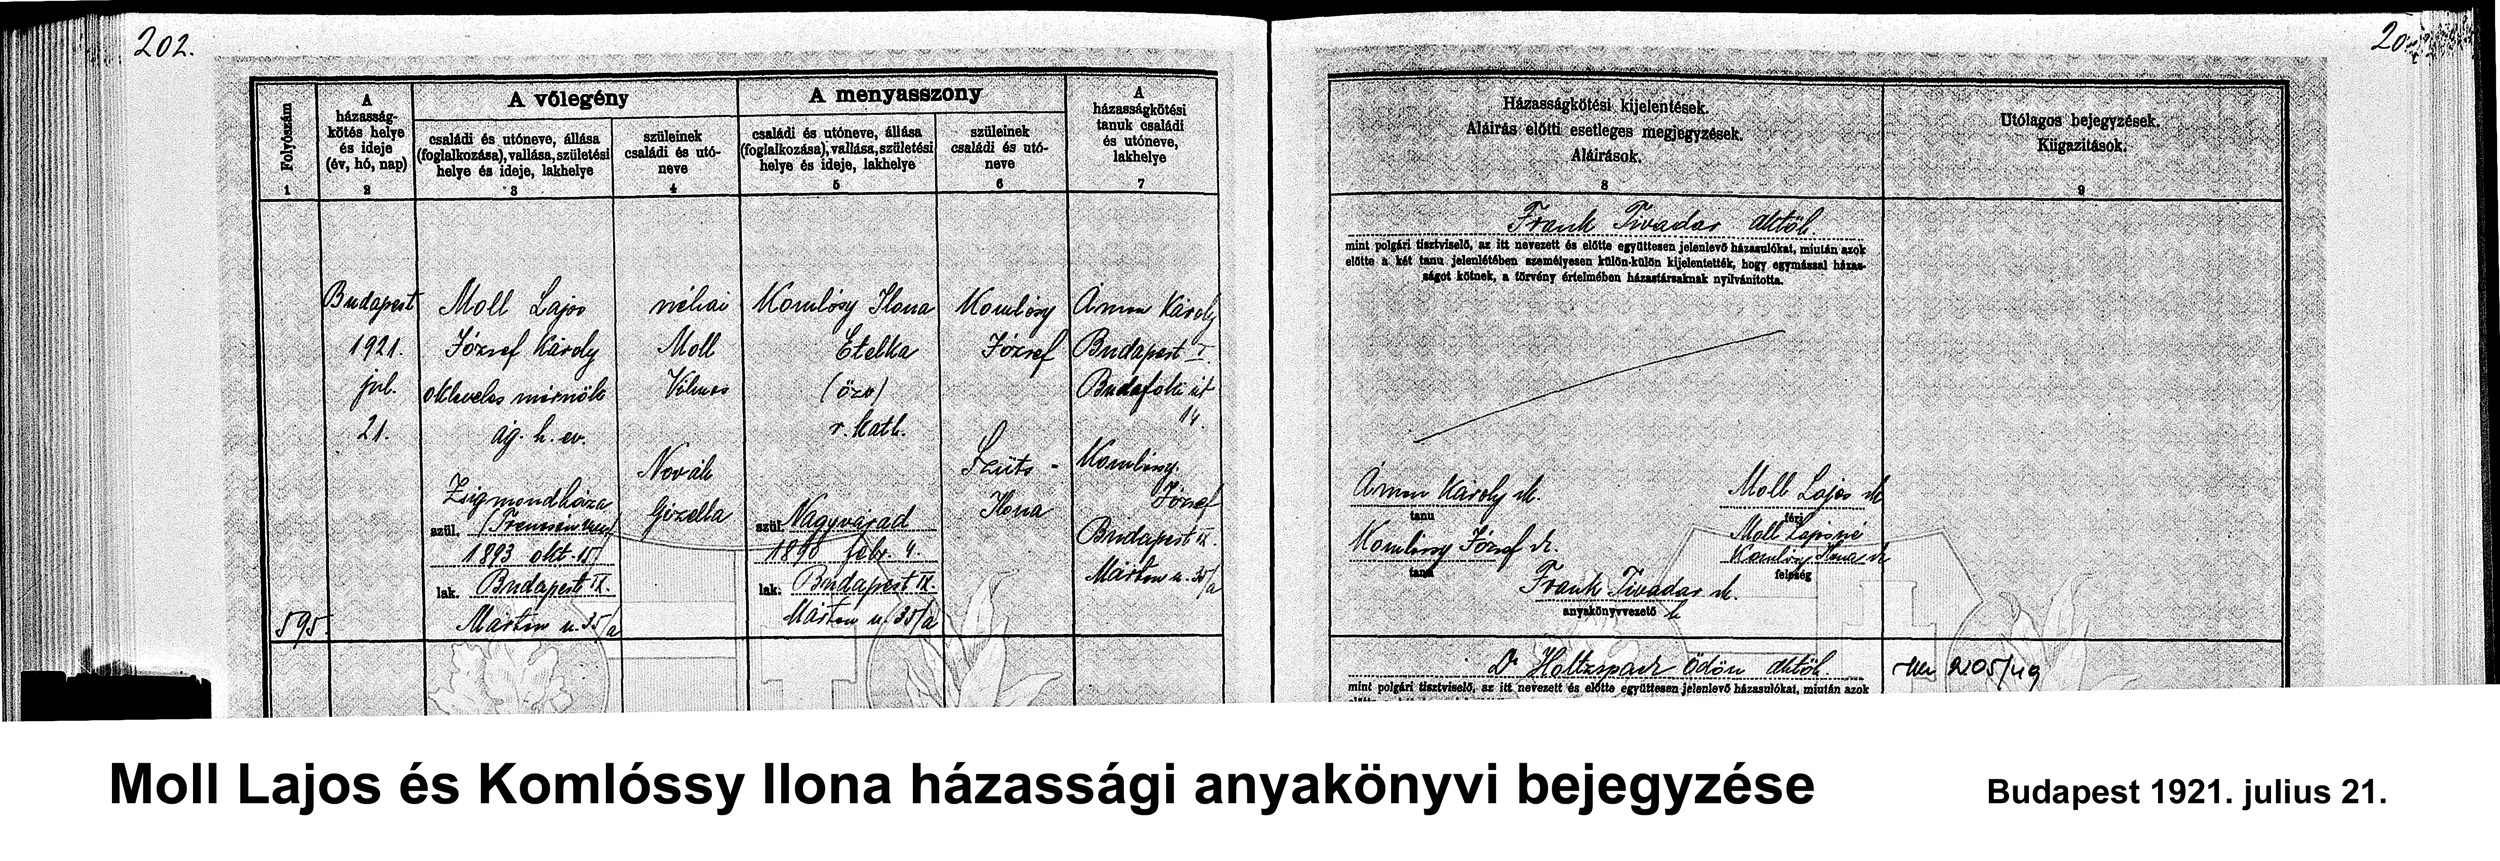 202.
Folyószám
1
A
házasság-
kötés helye
és ideje
(év, hó, nap)
2
A vőlegény
családi és utóneve, állása
(foglalkozása), vallása, születési
helye és ideje, lakhelye
3
szüleinek
családi és utó-
neve
4
A menyasszony
családi és utóneve, állása
(foglalkozása), vallása, születési
helye és ideje, lakhelye
5
szüleinek
családi és utó-
neve
6
A
házasságkötési
tanuk családi
és utóneve,
lakhelye
7
595.
Budapest
1921.
jul.
21.
Moll Lajos
József Károly
okleveles mérnök
ág. h. ev.
Zsigmondháza
szül. (Trencsén
1893 okt. 15.
lak. Budapest IX.
Márton u. 35/a
néhai
Moll
Vilmos
Novák
Gizella
Komlósy Ilona
Etelka
(özv)
r. kath.
szül. Nagyvárad
febr. 4.
lak. Budapest IX.
Márton u. 35/a
Komlósy
József
Szüts
Ilona
Ámon Károly
Budapest I.
Budafoki út
14.
Komlósy
József
Budapest IX.
Márton u. 35/a
Házasságkötési kijelentések.
Aláírás előtti esetleges megjegyzések.
Aláírások.
8
Utólagos bejegyzések.
Kiigazitások.
9
Frank Tivadar
mint polgári tisztviselő, az itt nevezett és előtte együttesen jelenlevő házasulókat, miután azok
előtte a két tanu jelenlétében személyesen külön-külön kijelentették, hogy egymással házas-
ságot kötnek, a törvény értelmében házastársaknak nyilvánította.
Ámon Károly sk.
tanu
Moll Lajos sk
férj
Komlósy József sk.
tanu
Moll Lajosné
Komlósy Ilona sk
feleség
Frank Tivadar sk.
anyakönyvvezető h
Dr Ödön
mint polgári tisztviselő, az itt nevezett és előtte együttesen jelenlevő házasulókat, miután azok
205/49
Moll Lajos és Komlóssy Ilona házassági anyakönyvi bejegyzése
Budapest 1921. julius 21.